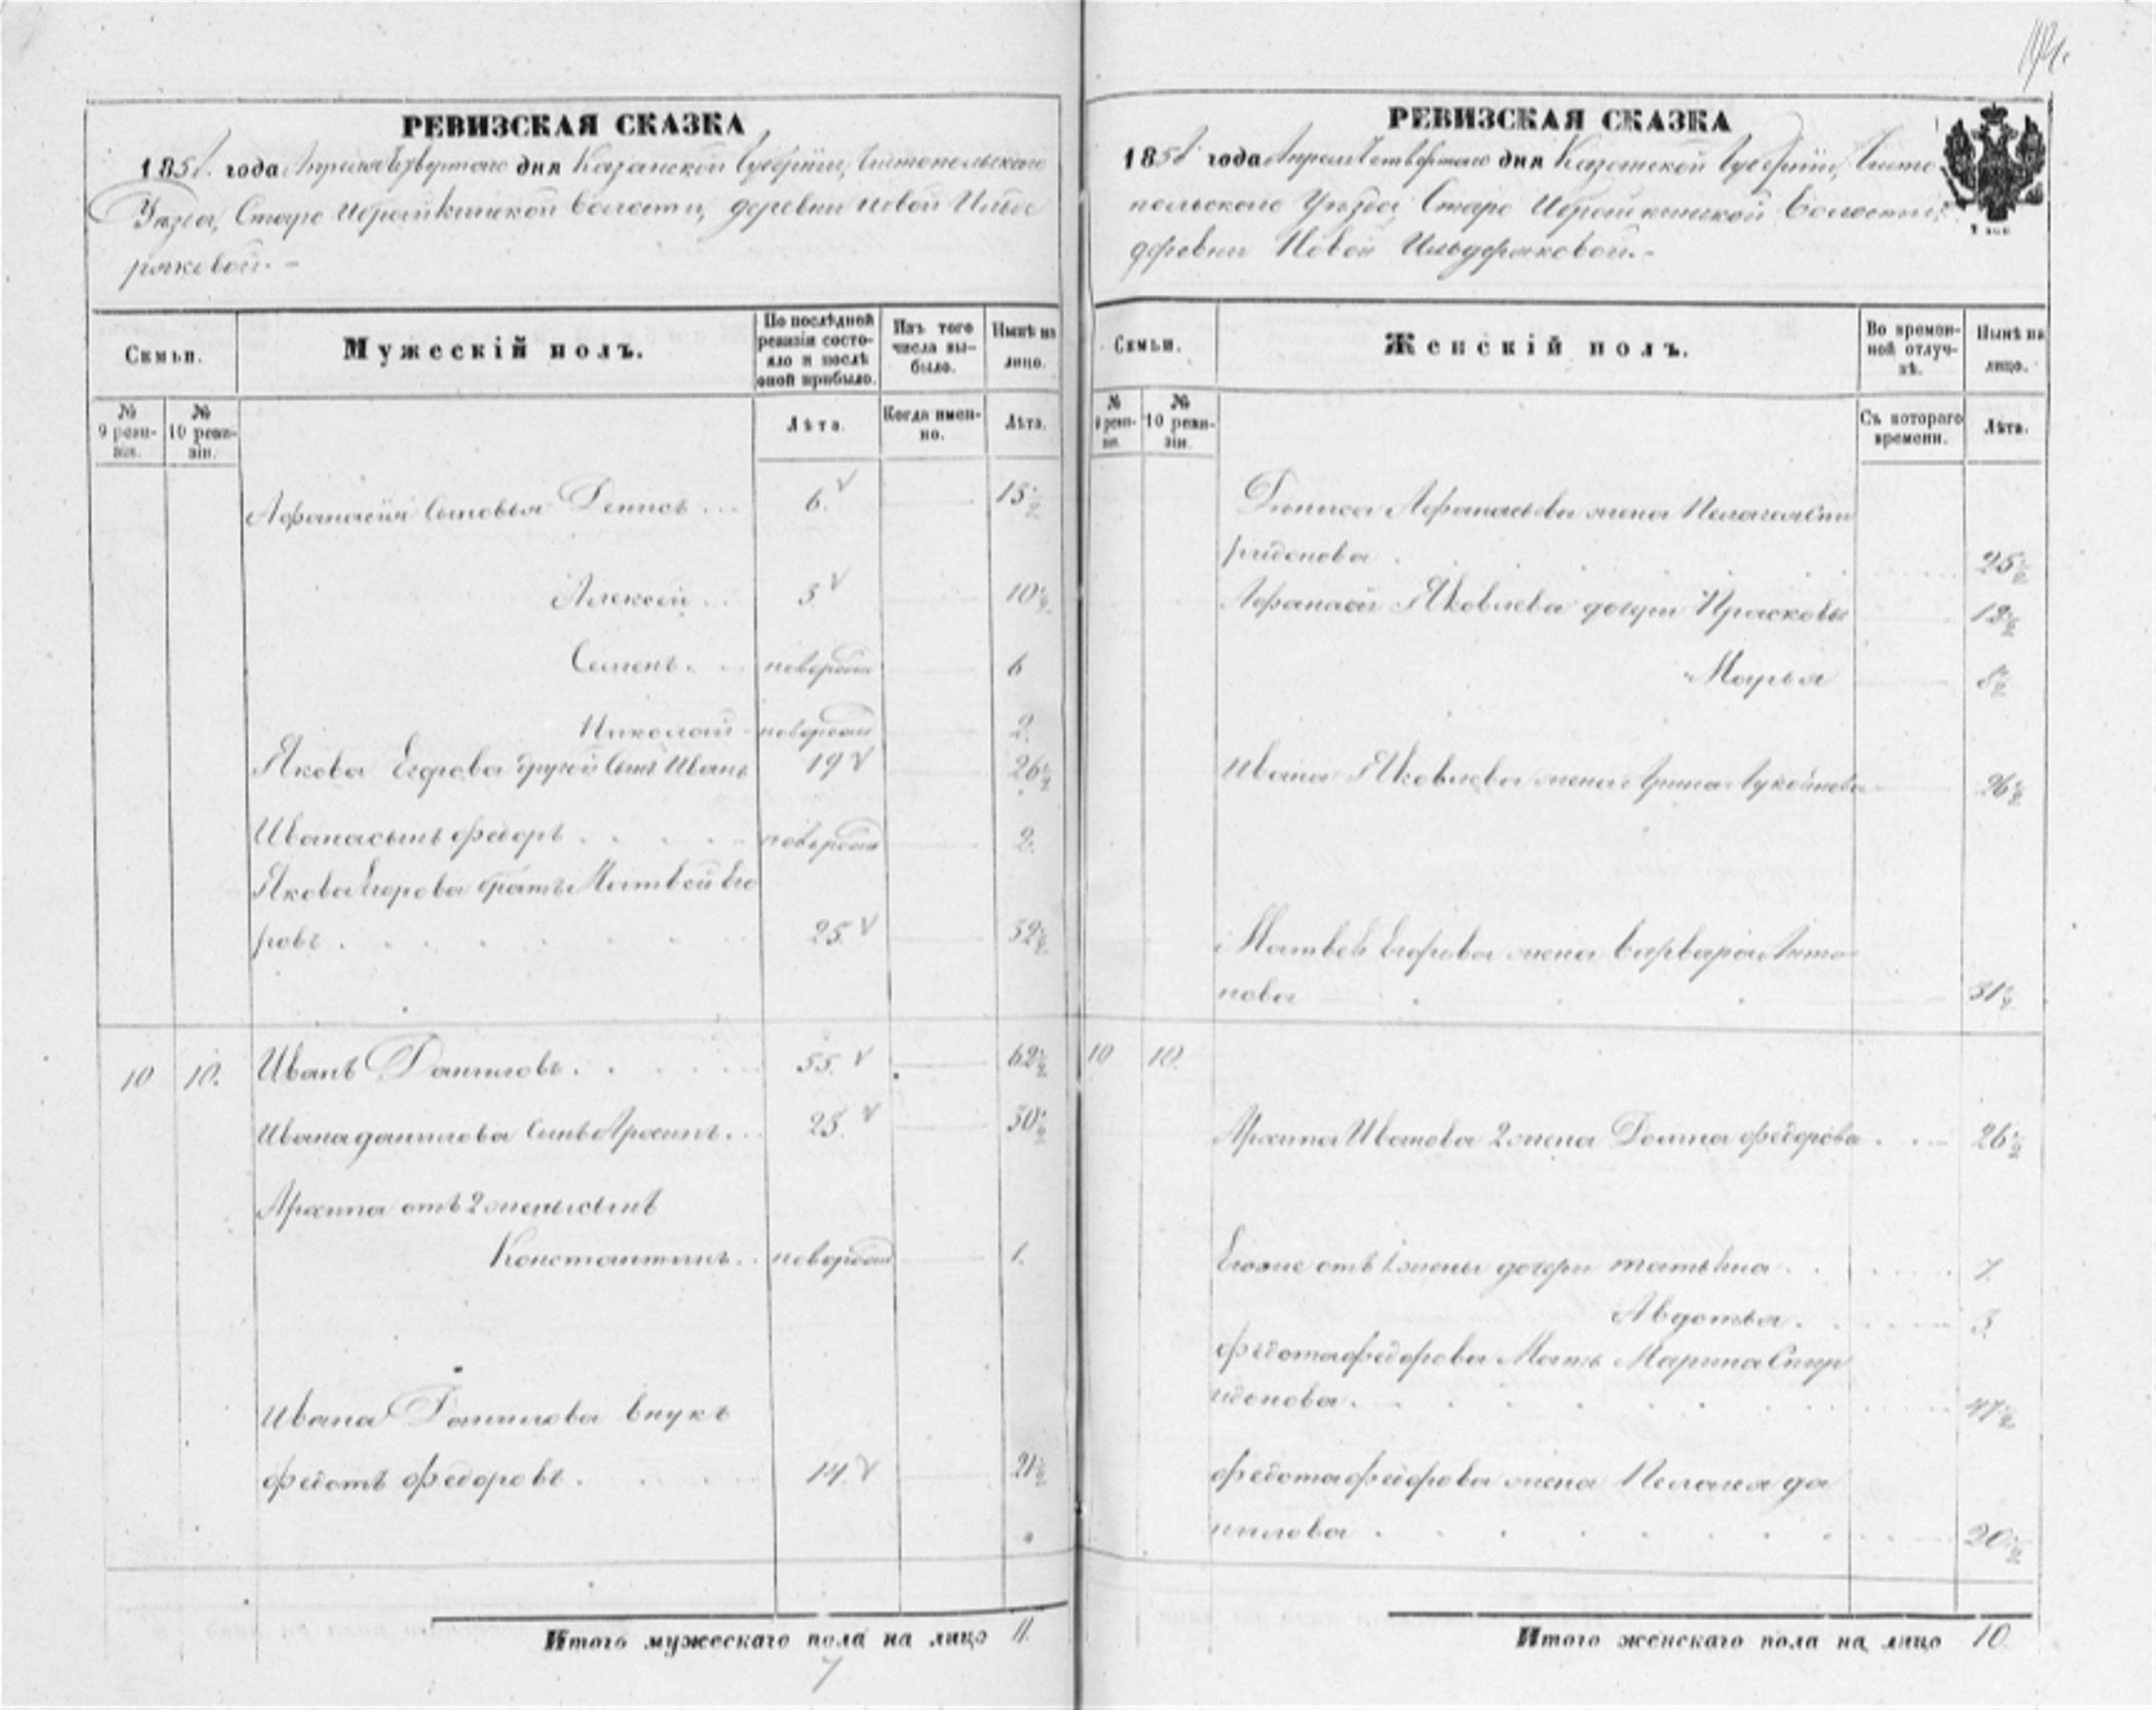 РЕВИЗСКАЯ СКАЗКА
1858 года Апреля Четвертого дня Казанской Губерніи, Чистопольскаго
Уѣзда, Старо Ибрайкинской волости, деревни новой Ильде
ряковой.-
Семьи.
Мужескій полъ.
По послѣдней ревизіи состояло и послѣ оной прибыло.
Изъ того числа выбыло.
Нынѣ на лицо.
№ 9 ревизіи.
№ 10 ревизіи.
Лѣта.
Когда именно.
Лѣта.
Афанасія сыновья Денисъ ... 6. 13½
Алексей .. 3 10½
Семенъ. . новорожд 6
Николай новорожд 2.
Якова Егорова другой сынъ Иванъ 19 26½
Ивана сынъ федоръ . . . . новорожд 2.
Якова Егорова братъ Матвей Его
ровъ . . . . . . 25. 32½
10 10. Иванъ Даниловъ. . . . . . 55. 62½
Ивана данилова сынъ Архипъ. .. 23. 30½
Архипа отъ 2 жены сынъ
Константинъ. . новорожд 1.
Ивана Данилова внукъ
федотъ федоровъ . . . . 14. 21½
Итого мужескаго пола на лицо 11.
7
РЕВИЗСКАЯ СКАЗКА
1858 года Апреля Четвертого дня Казанской Губерніи, Чисто
польскаго Уѣзда Старо Ибрайкинской Волости,
деревни Новой Ильдеряковой.-
Семьи.
Женскій полъ.
Во временной отлучкѣ.
Нынѣ на лицо.
№ 9 ревизіи.
№ 10 ревизіи.
Съ котораго времени.
Лѣта.
Дениса Афанасьева жена Пелагея Спи
ридонова . . . . 25½
Афанасія Яковлева дочери Прасковья 12½
Марья 8½
Ивана Яковлева жена Арина Лукоянова 26½
Матвея Егорова жена Варвара Анто
нова 31½
10 10.
Архипа Иванова 2 жена Домна федорова . . . 26½
Его же отъ 1 жены дочери татьяна . . . . 7.
Авдотья. . . . 3.
федота федорова Мать Марина Спир
идонова. . . . . . 47½
федота федорова жена Пелагея да
нилова . . . . . . 20½
Итого женскаго пола на лицо 10.